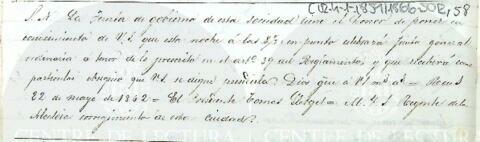 (12.4-1-1859/1866) 302, 58
S. N. La Junta de gobierno de esta Sociedad tiene el honor de poner en
conocimiento de V. S. que esta noche á las 8½ en punto celebrará Junta general
ordinaria á tenor de lo prescrito en el artº 39 del Reglamento; y que recibirá como
particular obsequio que V. S. se digne presidirla. Dios gue á V. S. ms as = Reus
22 de mayo de 1862 = El Presidente Tomas = M. Y. S. Regente de la
Alcaldia corregimiento de esta Ciudad.
CENTRE DE LECTURA CENTRE DE LECTURA